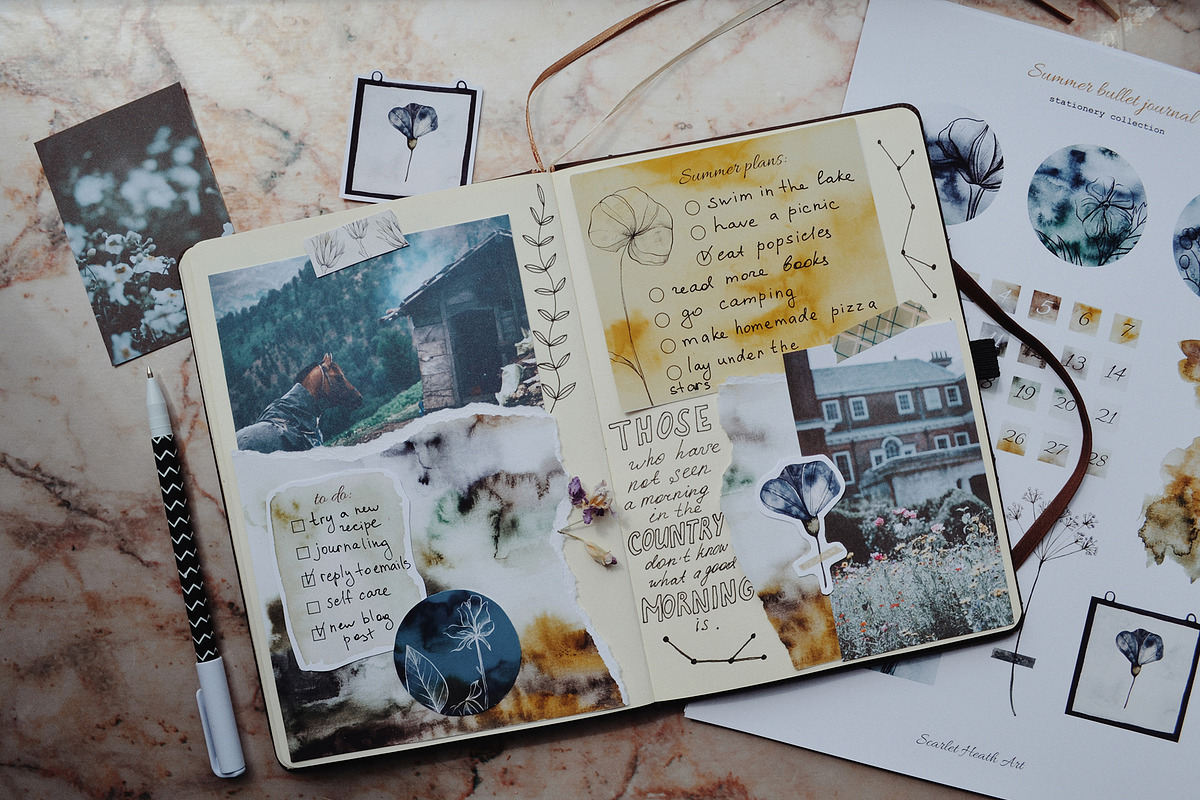 to do:
try a new
recipe
journaling
reply to emails
self care
new blog
post
Summer plans:
swim in the lake
have a picnic
eat popsicles
read more books
go camping
make homemade pizza
lay under the
stars
THOSE
who have
not seen
a morning
in the
COUNTRY
don't know
what a good
MORNING
is.
Summer bullet journal
stationery collection
4 5 6 7
13 14
19 20 21
26 27 28
Scarlet Heath Art